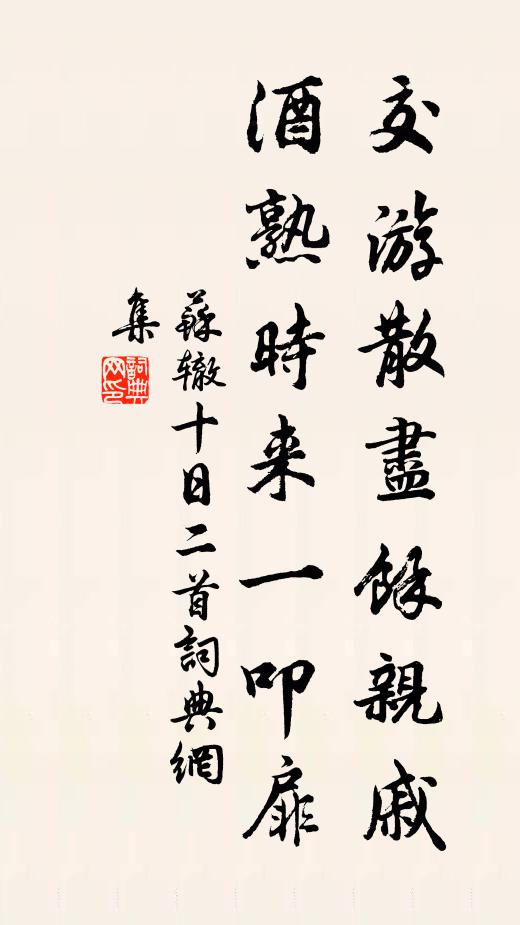 交游散盡餘親戚
酒熟時来一叩扉
蘇辙十日二首詞典網
集
詞典
网印